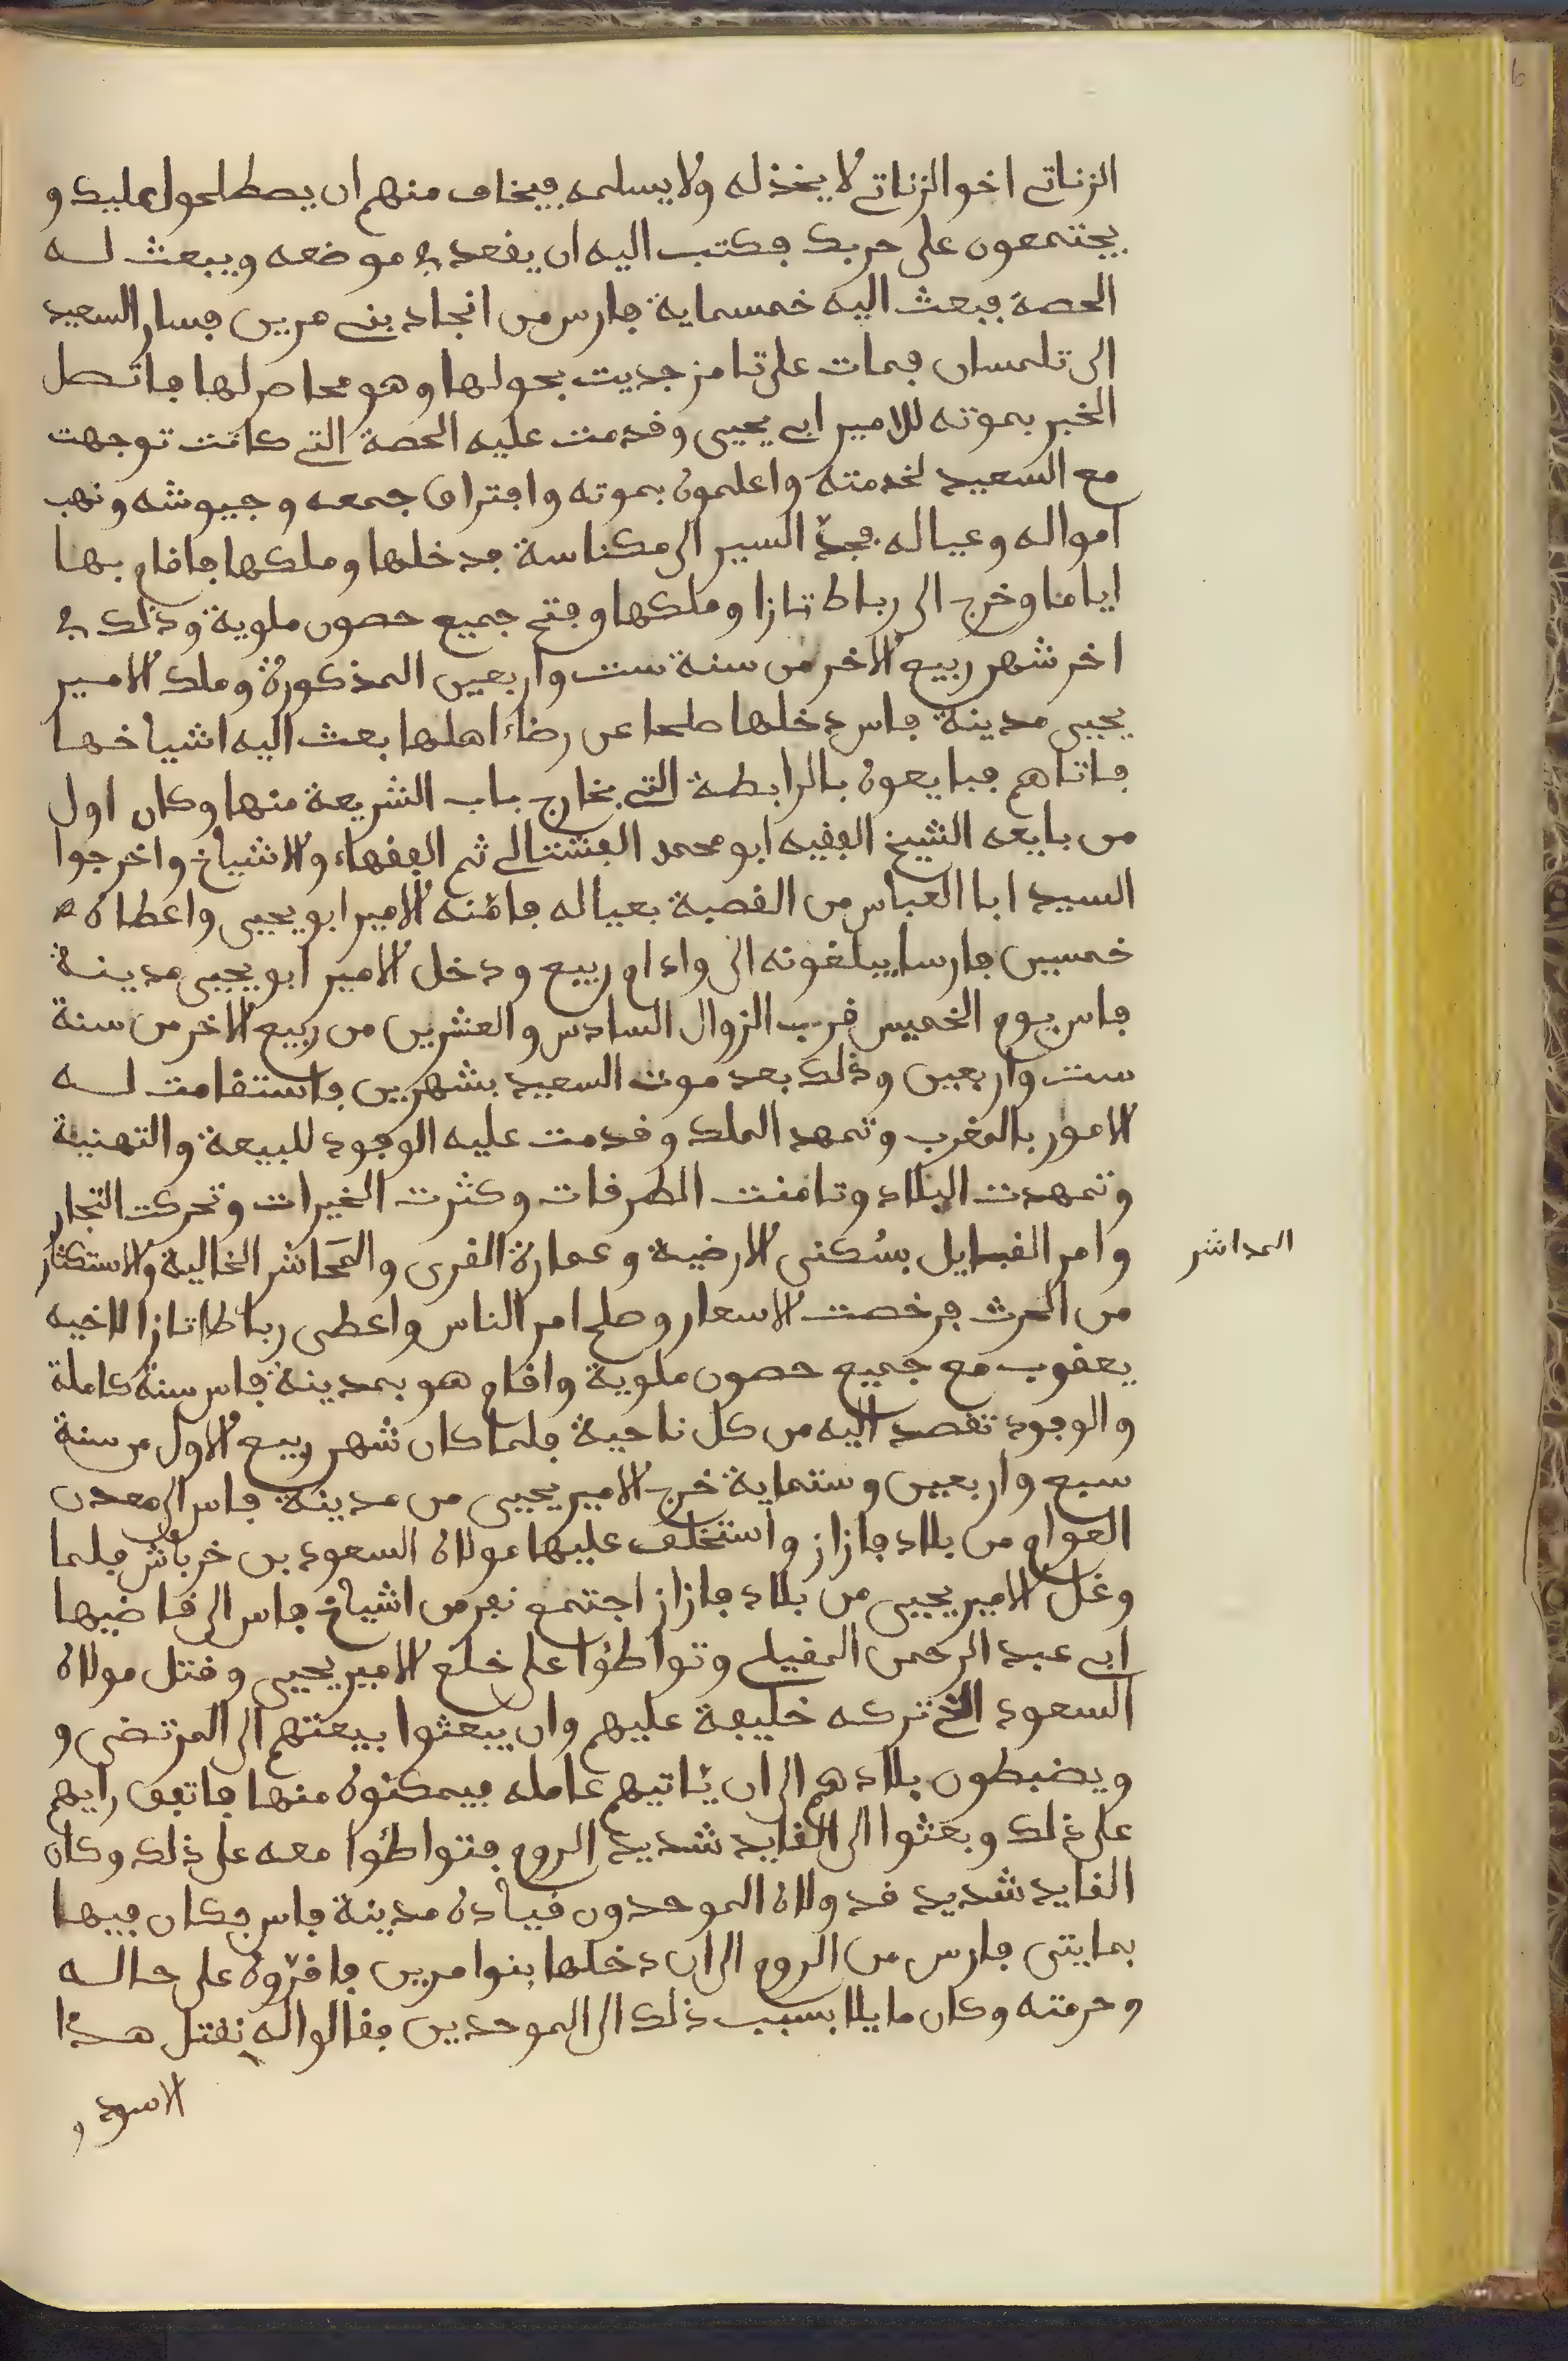 الزناتي اخو الزناتي لا يخذله ولا يسلمه فيخاف منهم ان يصطلحوا عليك و
يجتمعون على حربك فكتب اليه ان يقعد في موضعه ويبعث له
الحصة فبعث اليه خمسماية فارس من انجاد بني مرين فسار السعيد
الى تلمسان فمات على تامزجديت بحولها وهو محاصر لها فاتصل
الخبر بموته للامير ابي يحيى وقدمت عليه الحصة التي كانت توجهت
مع السعيد لخدمته واعلموه بموته وافتراق جمعه وجيوشه ونهب
امواله وعياله فجدّ السير الى مكناسة فدخلها وملكها فاقام بها
اياما وخرج الى رباط تازا وملكها وفتح جميع حصون ملوية وذلك في
اخر شهر ربيع الاخر من سنة ست واربعين المذكورة وملك الامير
يحيى مدينة فاس دخلها صلحا عن رضاء اهلها بعث اليه اشياخها
فاتاهم فبايعوه بالرابطة التي بخارج باب الشريعة منها وكان اول
من بايعه الشيخ الفقيه ابو محمد الفشتالي ثم الفقهاء والاشياخ واخرجوا
السيد ابا العباس من القصبة بعياله فامّنه الامير ابو يحيى واعطاه
خمسين فارسا يبلغونه الى واد ام ربيع ودخل الامير ابو يحيى مدينة
فاس يوم الخميس قرب الزوال السادس والعشرين من ربيع الاخر من سنة
ست واربعين وذلك بعد موت السعيد بشهرين فاستقامت له
الامور بالمغرب وتمهد الملك وقدمت عليه الوفود للبيعة والتهنية
وتمهدت البلاد وتامنت الطرقات وكثرت الخيرات وتحركت التجار
وامر القبايل بسُكنى الارضية وعمارة القرى والمَحَاشر الخالية والاستكثار
المداشر
من الحرث فرخصت الاسعار وصلح امر الناس واعطى رباط تازا لاخيه
يعقوب مع جميع حصون ملوية واقام هو بمدينة فاس سنة كاملة
والوفود تقصد اليه من كل ناحية فلما كان شهر ربيع الاول من سنة
سبع واربعين وستماية خرج الامير يحيى من مدينة فاس الى معدن
العوام من بلاد فازاز واستخلف عليها مولاه السعود بن خرباش فلما
وغل الامير يحيى من بلاد فازاز اجتمع نفر من اشياخ فاس الى قاضيها
ابي عبد الرحمن المغيلي وتواطؤا على خلع الامير يحيى وقتل مولاه
السعود الذي تركه خليفة عليهم وان يبعثوا بيعتهم الى المرتضى و
ويضبطون بلادهم الى ان ياتيهم عامله فيمكنوه منها فاتفق رايهم
على ذلك وبعثوا الى القايد شديد الروم فتواطؤا معه على ذلك وكان
القايد شديد قد ولاه الموحدون قيادة مدينة فاس فكان فيها
بمايتى فارس من الروم الى ان دخلها بنوا مرين فاقرّوه على حاله
وحرمته وكان مايلا بسبب ذلك الى الموحدين فقالوا له نقتل هذا
الاسود و